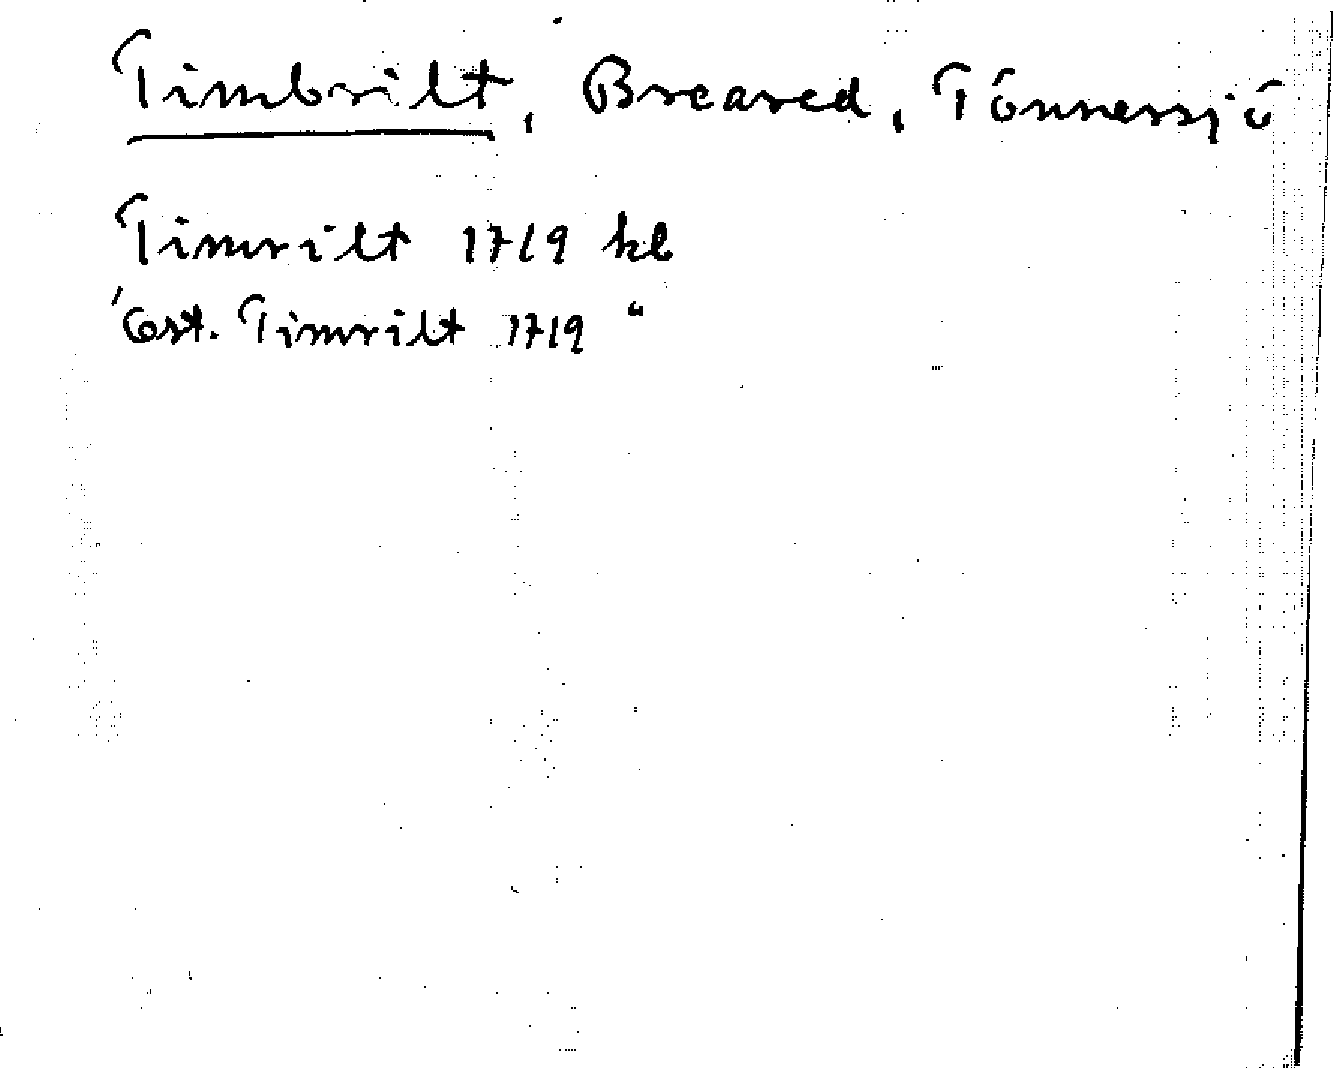 Timbrilt, Breared, Tönnersjö
Timrilt 1719 kb
Öst. Timrilt 1719 "